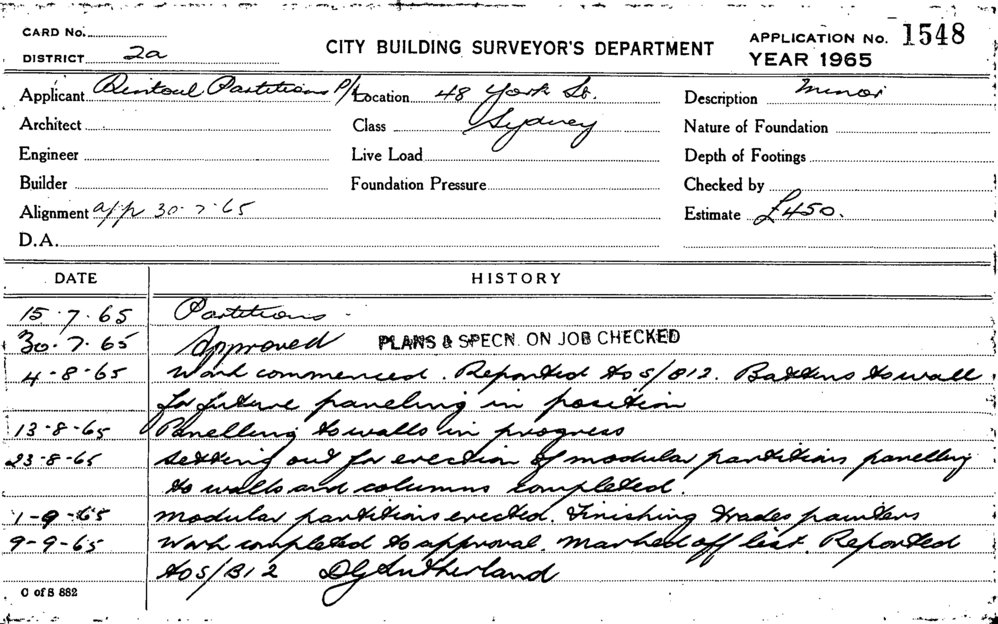 CARD No.
DISTRICT 2a
CITY BUILDING SURVEYOR'S DEPARTMENT
APPLICATION No. 1548
YEAR 1965
Applicant Rintoul Partitions P/L
Location 48 York St.
Sydney
Description Minor
Architect
Class
Nature of Foundation
Engineer
Live Load
Depth of Footings
Builder
Foundation Pressure
Checked by
Alignment app 30-7-65
Estimate £450.
D.A.
DATE HISTORY
15.7.65 Partitions.
30.7.65 Approved PLANS & SPECN. ON JOB CHECKED
4-8-65 Work commenced. Reported to S/B12. Battens to wall
for future paneling in position
13-8-65 Panelling to walls in progress
23-8-65 Setting out for erection of modular partitions panelling
to walls and columns completed.
1-9-65 Modular partitions erected. Finishing trades painters
9-9-65 Work completed to approval. Marked off list. Reported
to S/B12 DG Sutherland
C of S 882